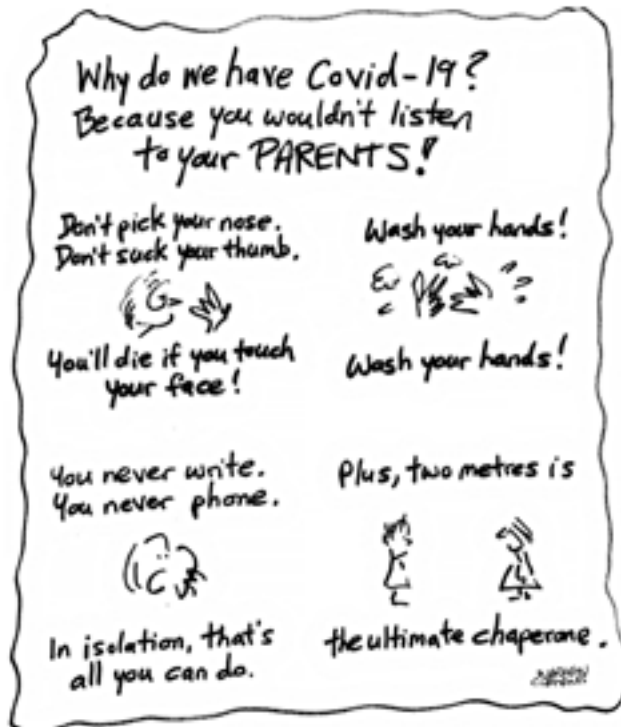 Why do we have Covid-19?
Because you wouldn't listen
to your PARENTS!
Don't pick your nose.
Don't suck your thumb.
You'll die if you touch
your face!
Wash your hands!
Wash your hands!
You never write.
You never phone.
In isolation, that's
all you can do.
Plus, two metres is
the ultimate chaperone.